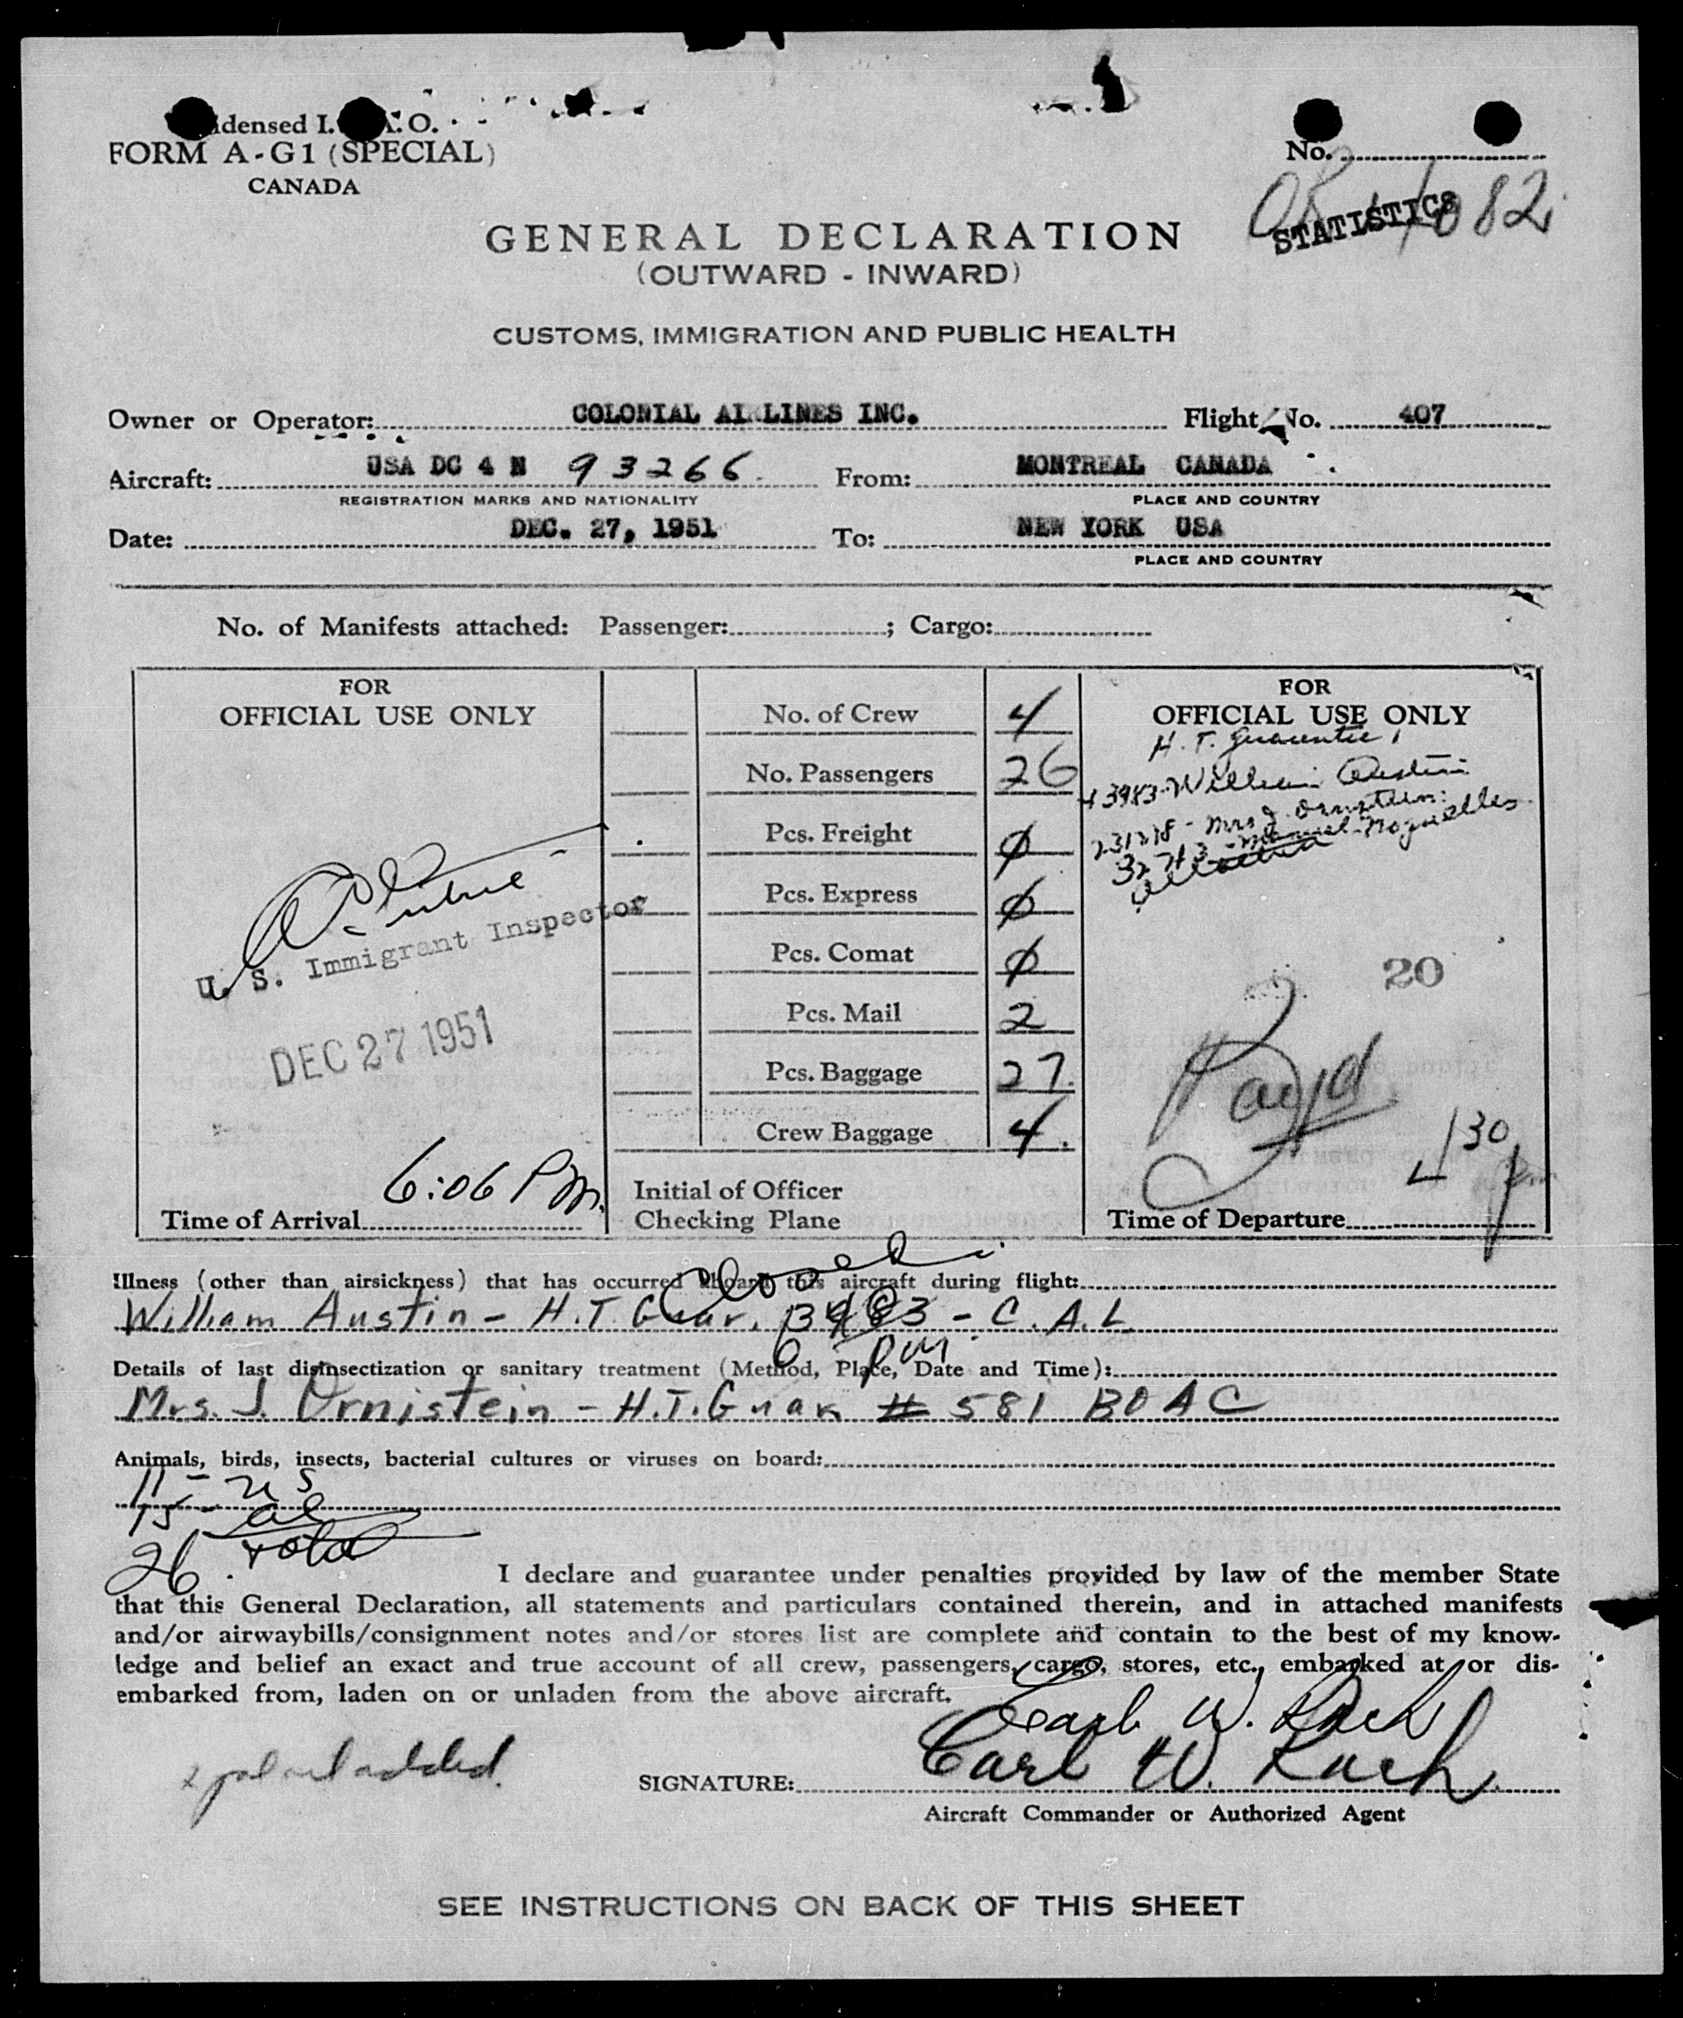 FORM A-G1 (SPECIAL)
CANADA
No.
STATISTICS
GENERAL DECLARATION
(OUTWARD - INWARD)
CUSTOMS, IMMIGRATION AND PUBLIC HEALTH
Owner or Operator: COLONIAL AIRLINES INC. Flight No. 407
Aircraft: USA DC 4 N 93266 From: MONTREAL CANADA
REGISTRATION MARKS AND NATIONALITY PLACE AND COUNTRY
Date: DEC. 27, 1951 To: NEW YORK USA
PLACE AND COUNTRY
No. of Manifests attached: Passenger: ; Cargo:
FOR
OFFICIAL USE ONLY
U. S. Immigrant Inspector
DEC 27 1951
6:06 PM.
Time of Arrival
No. of Crew 4
No. Passengers 26
Pcs. Freight Ø
Pcs. Express Ø
Pcs. Comat Ø
Pcs. Mail 2
Pcs. Baggage 27.
Crew Baggage 4.
Initial of Officer
Checking Plane
FOR
OFFICIAL USE ONLY
H. T. Guarantee
3983 - William Austin
20
4 30
Time of Departure
Illness (other than airsickness) that has occurred aboard this aircraft during flight:
William Austin - H.T. Guar. 3983 - C.A.L
Details of last disinsectization or sanitary treatment (Method, Place, Date and Time):
Mrs. J. Ornistein - H.T. Guar # 581 BOAC
Animals, birds, insects, bacterial cultures or viruses on board:
11 - US
15 - al
26. total
I declare and guarantee under penalties provided by law of the member State
that this General Declaration, all statements and particulars contained therein, and in attached manifests
and/or airwaybills/consignment notes and/or stores list are complete and contain to the best of my know-
ledge and belief an exact and true account of all crew, passengers, cargo, stores, etc., embarked at or dis-
embarked from, laden on or unladen from the above aircraft.
SIGNATURE:
Aircraft Commander or Authorized Agent
SEE INSTRUCTIONS ON BACK OF THIS SHEET